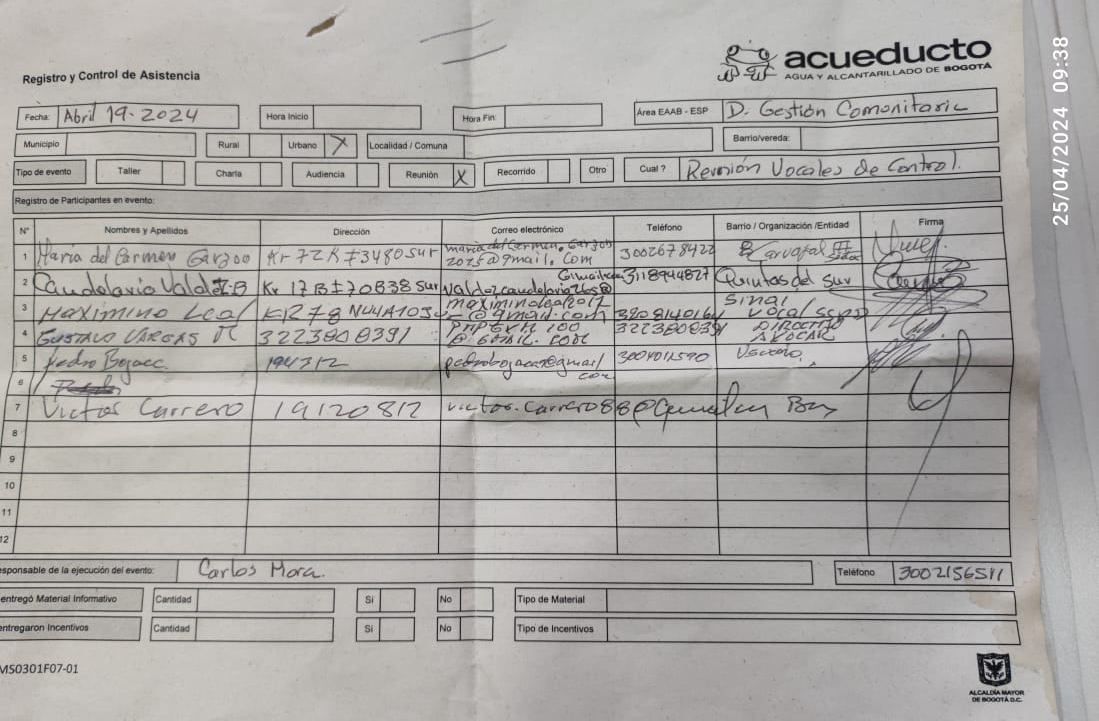 acueducto
AGUA Y ALCANTARILLADO DE BOGOTÁ
Registro y Control de Asistencia
Fecha: Abril 19-2024 Hora Inicio Hora Fin: Área EAAB - ESP D. Gestión Comonitaric
Municipio Rural Urbano X Localidad / Comuna Barrio/vereda:
Tipo de evento Taller Charla Audiencia Reunión X Recorrido Otro Cual ? Reunión Vocales de Control.
Registro de Participantes en evento:
N° Nombres y Apellidos Dirección Correo electrónico Teléfono Barrio / Organización /Entidad Firma
1 Maria del Carmen Garzon Kr 72K #3480 sur maria del Carmen. Garzon
2025@gmail.com 3002678422 Carvajal
2 Candelario Valdez B Kr 17B 70B38 sur Valdezcandelario26s@
Gmail.com 3118944827 Quintas del Sur
3 Maximino Leal KR 78 maximinoleal2012
@gmail.com 3208140164 Sinai
Vocal
4 Gustavo Vargas 3223808391
@ GMAIL. COM 3223808391
5 Pedro Bojaca 194312 pedrobojaca@gmail
com 3004011590
6
7 Victor Carrero 19120812 victor.carrero88@
8
9
10
11
12
esponsable de la ejecución del evento: Carlos Mora. Teléfono 3002156511
entregó Material Informativo Cantidad Si No Tipo de Material
ntregaron Incentivos Cantidad Si No Tipo de Incentivos
MS0301F07-01
ALCALDÍA MAYOR
DE BOGOTÁ D.C.
25/04/2024 09:38